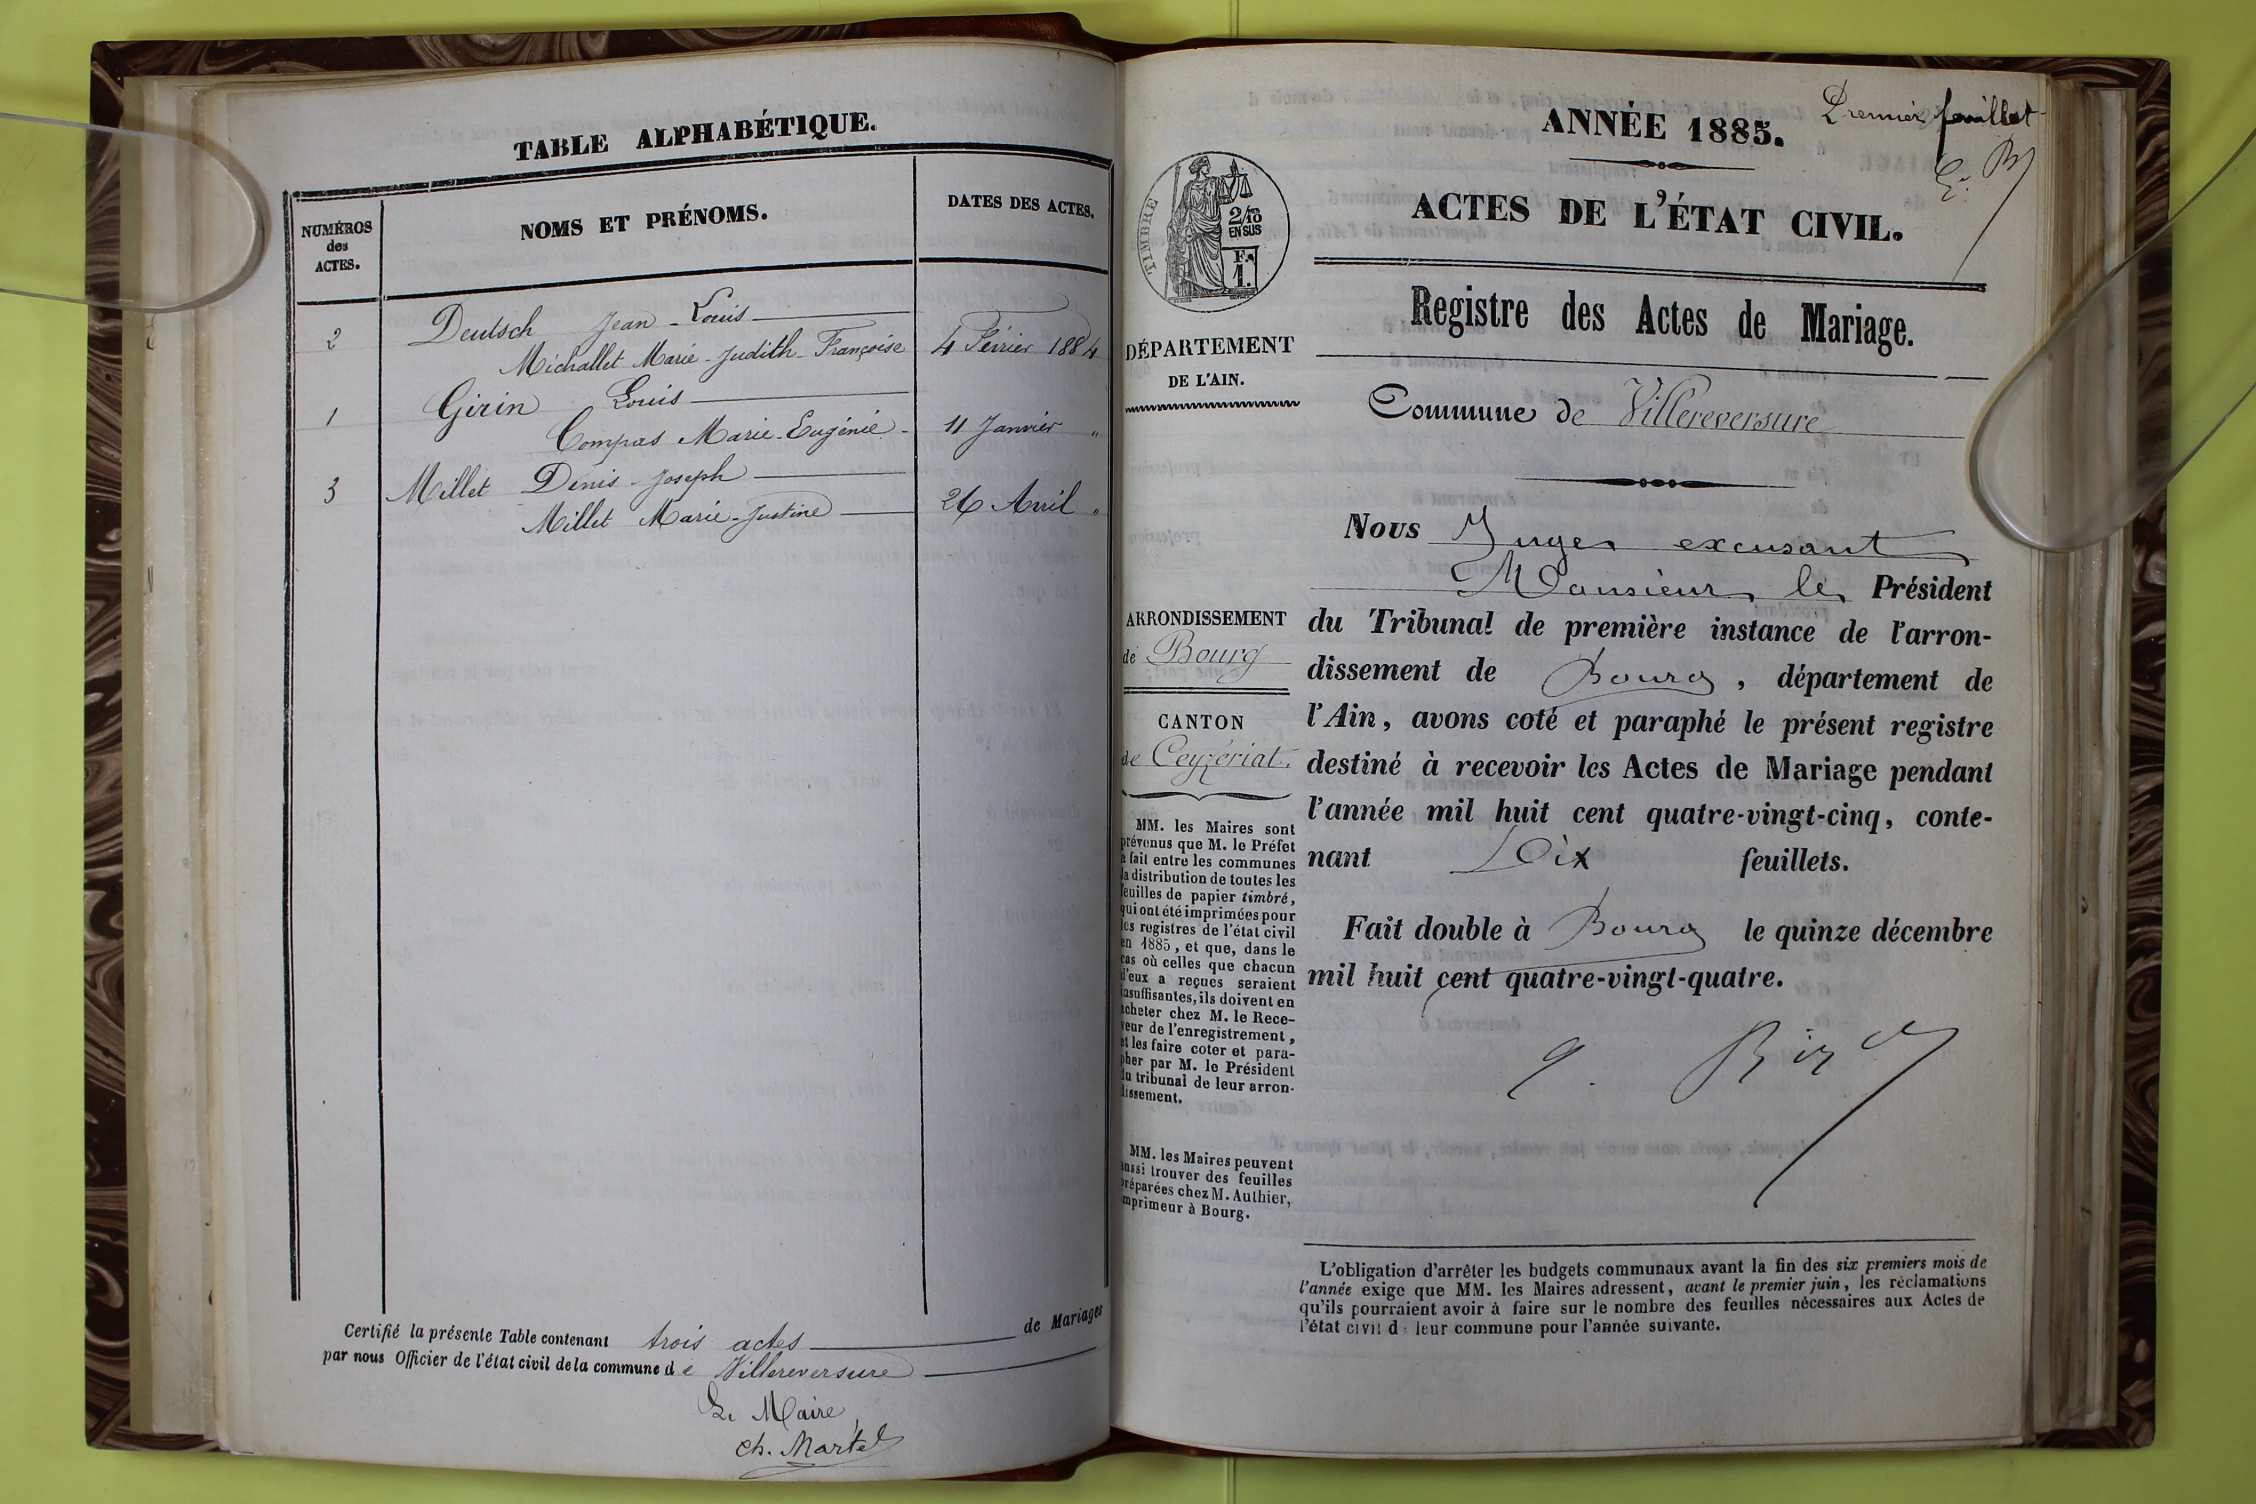 TABLE ALPHABÉTIQUE.
NUMÉROS
des
ACTES.
NOMS ET PRÉNOMS.
DATES DES ACTES.
2 Deutsch Jean-Louis
Michallet Marie-Judith-Françoise 4 Février 1884
1 Girin Louis
Compas Marie-Eugénie 11 Janvier "
3 Millet Denis-Joseph
Millet Marie-Justine 26 Avril "
Certifié la présente Table contenant trois actes de Mariages
par nous Officier de l'état civil de la commune de Villereversure
Le Maire
Ch. Martel
Premier feuillet
ANNÉE 1885.
ACTES DE L'ÉTAT CIVIL.
TIMBRE
2/10
EN SUS
F.
1.
Registre des Actes de Mariage.
DÉPARTEMENT
DE L'AIN.
Commune de Villereversure
ARRONDISSEMENT
de Bourg
CANTON
de Ceyzériat.
MM. les Maires sont
prévenus que M. le Préfet
a fait entre les communes
la distribution de toutes les
feuilles de papier timbré,
qui ont été imprimées pour
les registres de l'état civil
en 1885, et que, dans le
cas où celles que chacun
d'eux a reçues seraient
insuffisantes, ils doivent en
acheter chez M. le Rece-
veur de l'enregistrement,
et les faire coter et para-
pher par M. le Président
du tribunal de leur arron-
dissement.
MM. les Maires peuvent
aussi trouver des feuilles
préparées chez M. Authier,
imprimeur à Bourg.
Nous Juge excusant
Monsieur le Président
du Tribunal de première instance de l'arron-
dissement de Bourg, département de
l'Ain, avons coté et paraphé le présent registre
destiné à recevoir les Actes de Mariage pendant
l'année mil huit cent quatre-vingt-cinq, conte-
nant Dix feuillets.
Fait double à Bourg le quinze décembre
mil huit cent quatre-vingt-quatre.
L'obligation d'arrêter les budgets communaux avant la fin des six premiers mois de
l'année exige que MM. les Maires adressent, avant le premier juin, les réclamations
qu'ils pourraient avoir à faire sur le nombre des feuilles nécessaires aux Actes de
l'état civil de leur commune pour l'année suivante.